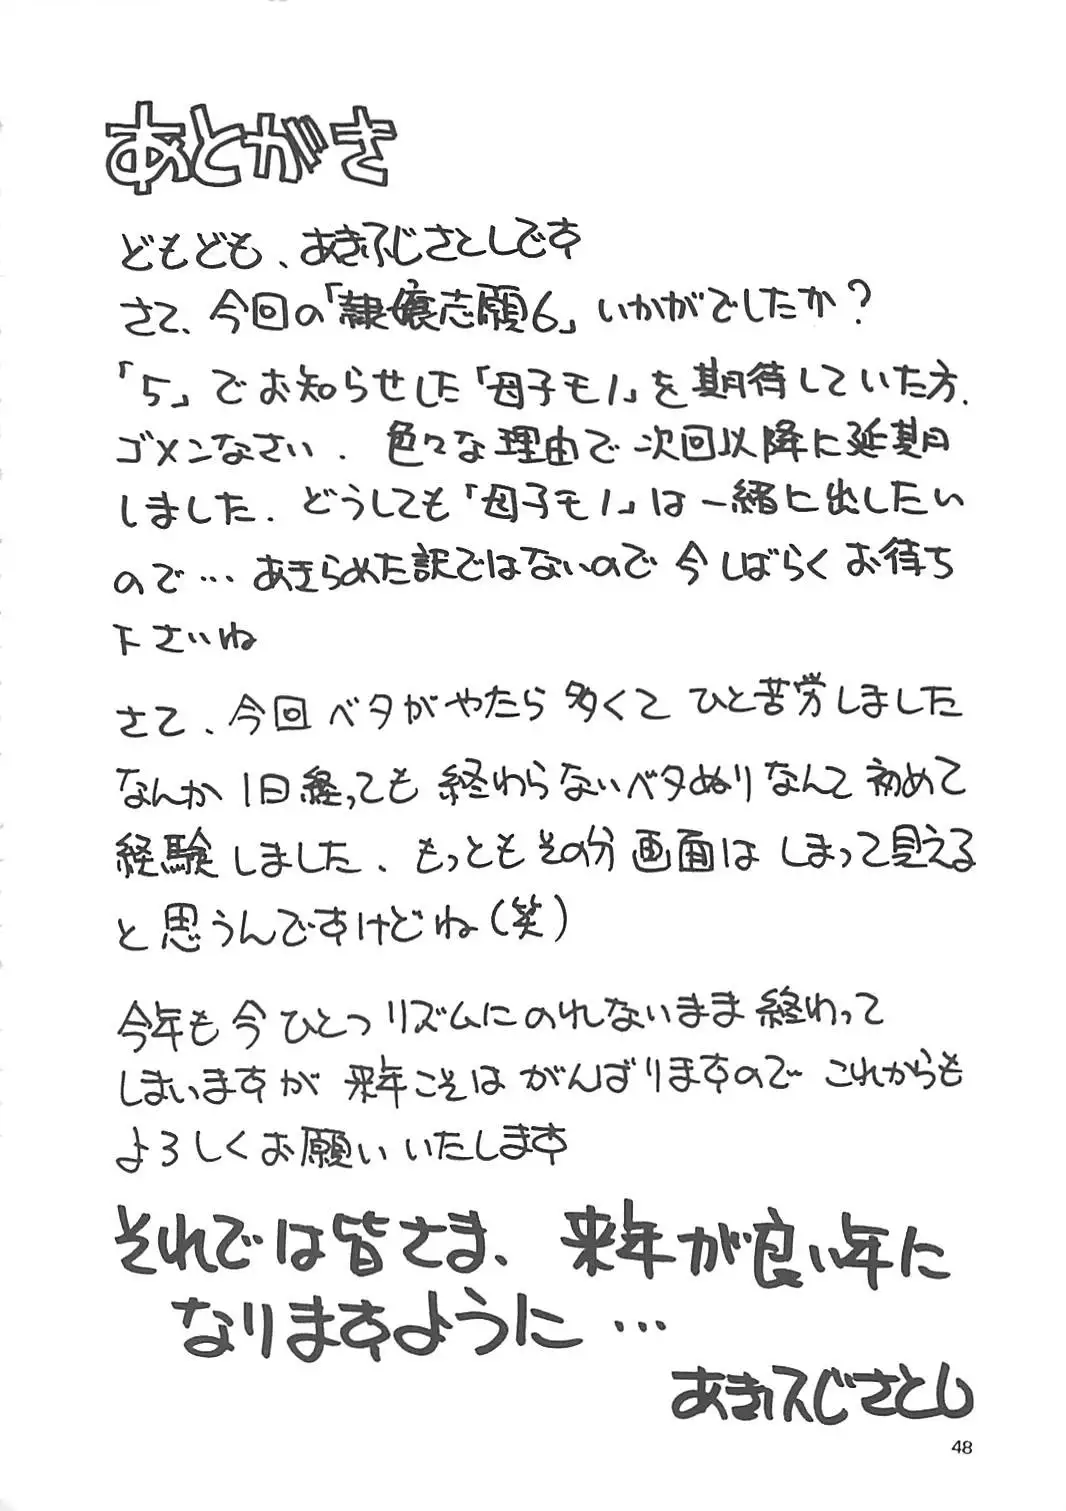 あとがき
どもども、あきふじさとしです
さて、今回の「隷嬢志願6」いかがでしたか？
「5」でお知らせした「母子モノ」を期待していた方、
ゴメンなさい．色々な理由で次回以降に延期
しました．どうしても「母子モノ」は一緒に出したい
ので…あきらめた訳ではないので今しばらくお待ち
下さいね
さて、今回ベタがやたら多くてひと苦労しました
なんか1日経っても終わらないベタぬりなんて初めて
経験しました．もっともその分画面はしまって見える
と思うんですけどね（笑）
今年も今ひとつリズムにのれないまま終わって
しまいますが来年こそはがんばりますのでこれからも
よろしくお願いいたします
それでは皆さま、来年が良い年に
なりますように…
あきふじさとし
48